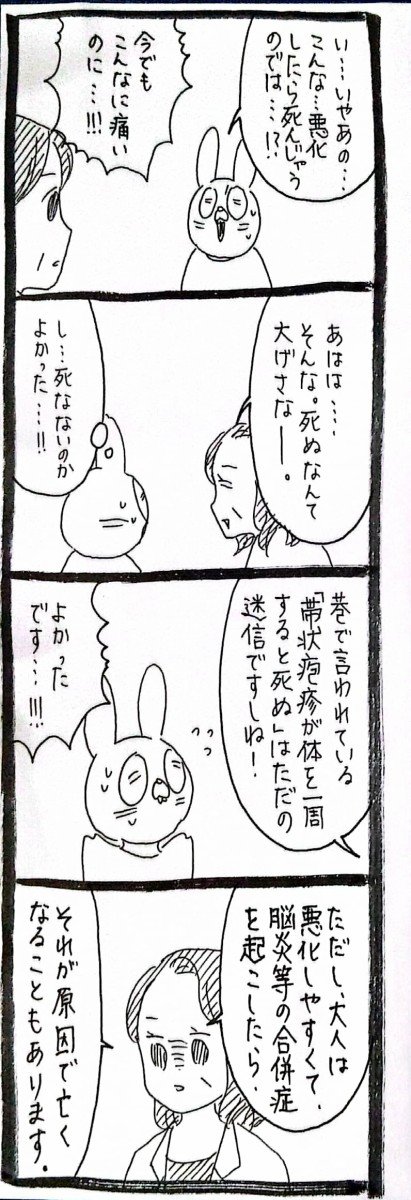 い…いやあの…
こんな…悪化
したら死んじゃう
のでは…!?
今でも
こんなに痛い
のに…!!!
あはは……
そんな。死ぬなんて
大げさなー。
し…死なないのか
よかった…!!
巷で言われている
「帯状疱疹が体を一周
すると死ぬ」はただの
迷信ですしね！
よかった
です…!!!
ただし、大人は
悪化しやすくて、
脳炎等の合併症
を起こしたら、
それが原因で亡く
なることもあります。